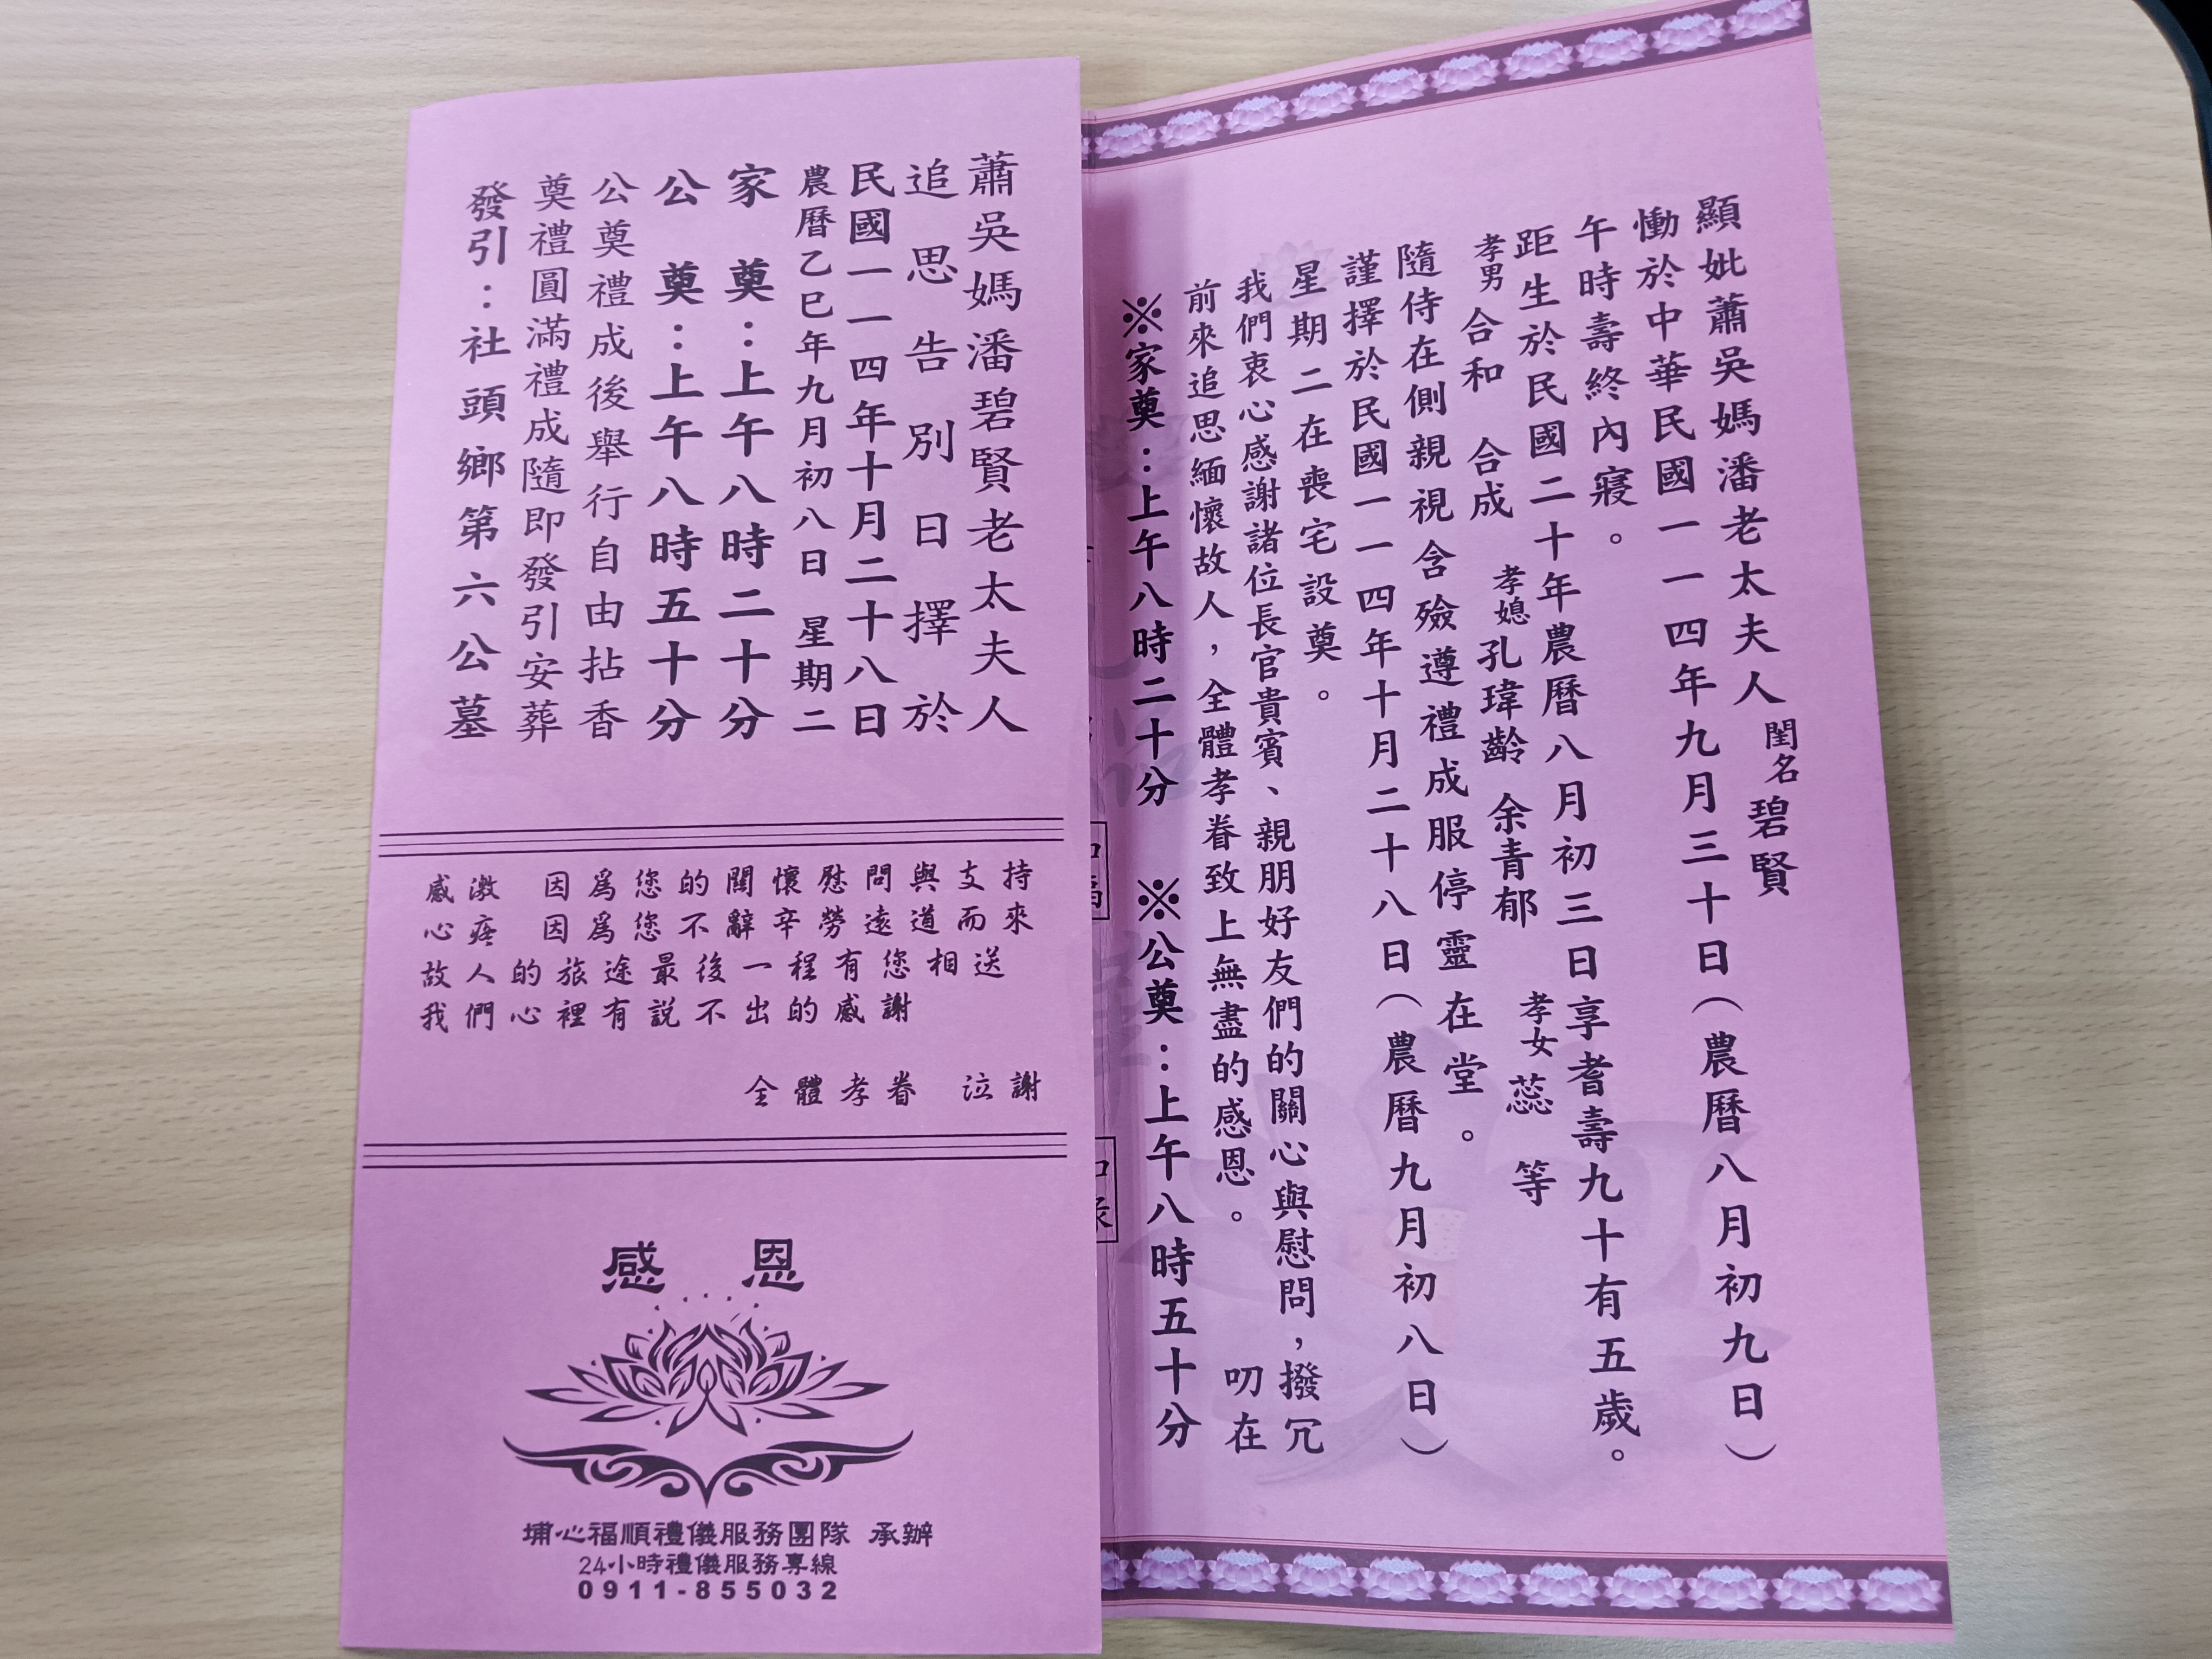 顯妣蕭吳媽潘老太夫人閨名碧賢
慟於中華民國一一四年九月三十日（農曆八月初九日）
午時壽終內寢。
距生於民國二十年農曆八月初三日享耆壽九十有五歲。
孝男合和 合成 孝媳孔瑋齡 余青郁 孝女蕊 等
隨侍在側親視含殮遵禮成服停靈在堂。
謹擇於民國一一四年十月二十八日（農曆九月初八日）
星期二在喪宅設奠。
我們衷心感謝諸位長官貴賓、親朋好友們的關心與慰問，撥冗
前來追思緬懷故人，全體孝眷致上無盡的感恩。 叨在
※家奠：上午八時二十分 ※公奠：上午八時五十分
蕭吳媽潘碧賢老太夫人
追思告別日擇於
民國一一四年十月二十八日
農曆乙巳年九月初八日 星期二
家 奠：上午八時二十分
公 奠：上午八時五十分
公奠禮成後舉行自由拈香
奠禮圓滿禮成隨即發引安葬
發引：社頭鄉第六公墓
感激 因為您的關懷慰問與支持
心疼 因為您不辭辛勞遠道而來
故人的旅途最後一程有您相送
我們心裡有説不出的感謝
全體孝眷 泣謝
感 恩
埔心福順禮儀服務團隊 承辦
24小時禮儀服務專線
0911-855032